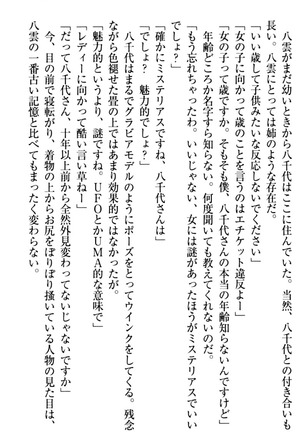 八雲がまだ幼いときから八千代はここに住んでいた。当然、八千代との付き合いも
長い。八雲にとっては姉のような存在だ。
「いい歳して子供みたいな反応しないでください」
「女の子に向かって歳のことを言うのはエチケット違反よー」
「女の子って歳ですか。そもそも僕、八千代さんの本当の年齢知らないんですけど」
年齢どころか名字すら知らない。何度聞いても教えてくれないのだ。
「もう忘れちゃったわ。いいじゃない、女には謎があったほうがミステリアスでいい
でしょ？」
「確かにミステリアスですね、八千代さんは」
「でしょ？　魅力的でしょ？」
八千代はまるでグラビアモデルのようにポーズをとってウインクをしてくる。残念
ながら色褪せた畳の上ではあまり効果的ではなかったが。
「魅力的というより、謎ですね。ＵＦＯとかＵＭＡ的な意味で」
「レディーに向かって酷い言い草ねー」
「だって八千代さん、十年以上前から全然外見変わってないじゃないですか」
今、目の前で寝転がり、着物の上からお尻をぼりぼり掻いている人物の見た目は、
八雲の一番古い記憶と比べてもまったく変わらない。